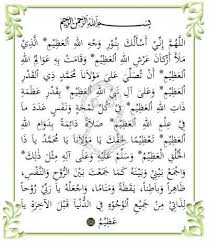 بِسْمِ اللهِ الرَّحْمٰنِ الرَّحِيْمِ
اَللّٰهُمَّ إِنِّيْ أَسْأَلُكَ بِنُوْرِ وَجْهِ اللهِ الْعَظِيْمِ * اَلَّذِيْ
مَلَأَ أَرْكَانَ عَرْشِ اللهِ الْعَظِيْمِ * وَقَامَتْ بِهِ عَوَالِمُ اللهِ
الْعَظِيْمِ * أَنْ تُصَلِّيَ عَلَى مَوْلَانَا مُحَمَّدٍ ذِي الْقَدْرِ
الْعَظِيْمِ * وَعَلَى آلِ نَبِيِّ اللهِ الْعَظِيْمِ * بِقَدْرِ عَظَمَةِ
ذَاتِ اللهِ الْعَظِيْمِ * فِيْ كُلِّ لَمْحَةٍ وَنَفَسٍ عَدَدَ مَا
فِيْ عِلْمِ اللهِ الْعَظِيْمِ * صَلَاةً دَائِمَةً بِدَوَامِ اللهِ
الْعَظِيْمِ * تَعْظِيْمًا لِحَقِّكَ يَا مَوْلَانَا يَا مُحَمَّدُ يَا ذَا
الْخُلُقِ الْعَظِيْمِ * وَسَلِّمْ عَلَيْهِ وَعَلَى آلِهِ مِثْلَ ذٰلِكَ *
وَاجْمَعْ بَيْنِيْ وَبَيْنَهُ كَمَا جَمَعْتَ بَيْنَ الرُّوْحِ وَالنَّفْسِ،
ظَاهِرًا وَبَاطِنًا، يَقَظَةً وَمَنَامًا، وَاجْعَلْهُ يَا رَبِّ رُوْحًا
لِذَاتِيْ مِنْ جَمِيْعِ الْوُجُوْهِ فِي الدُّنْيَا قَبْلَ الْآخِرَةِ يَا
عَظِيْمُ